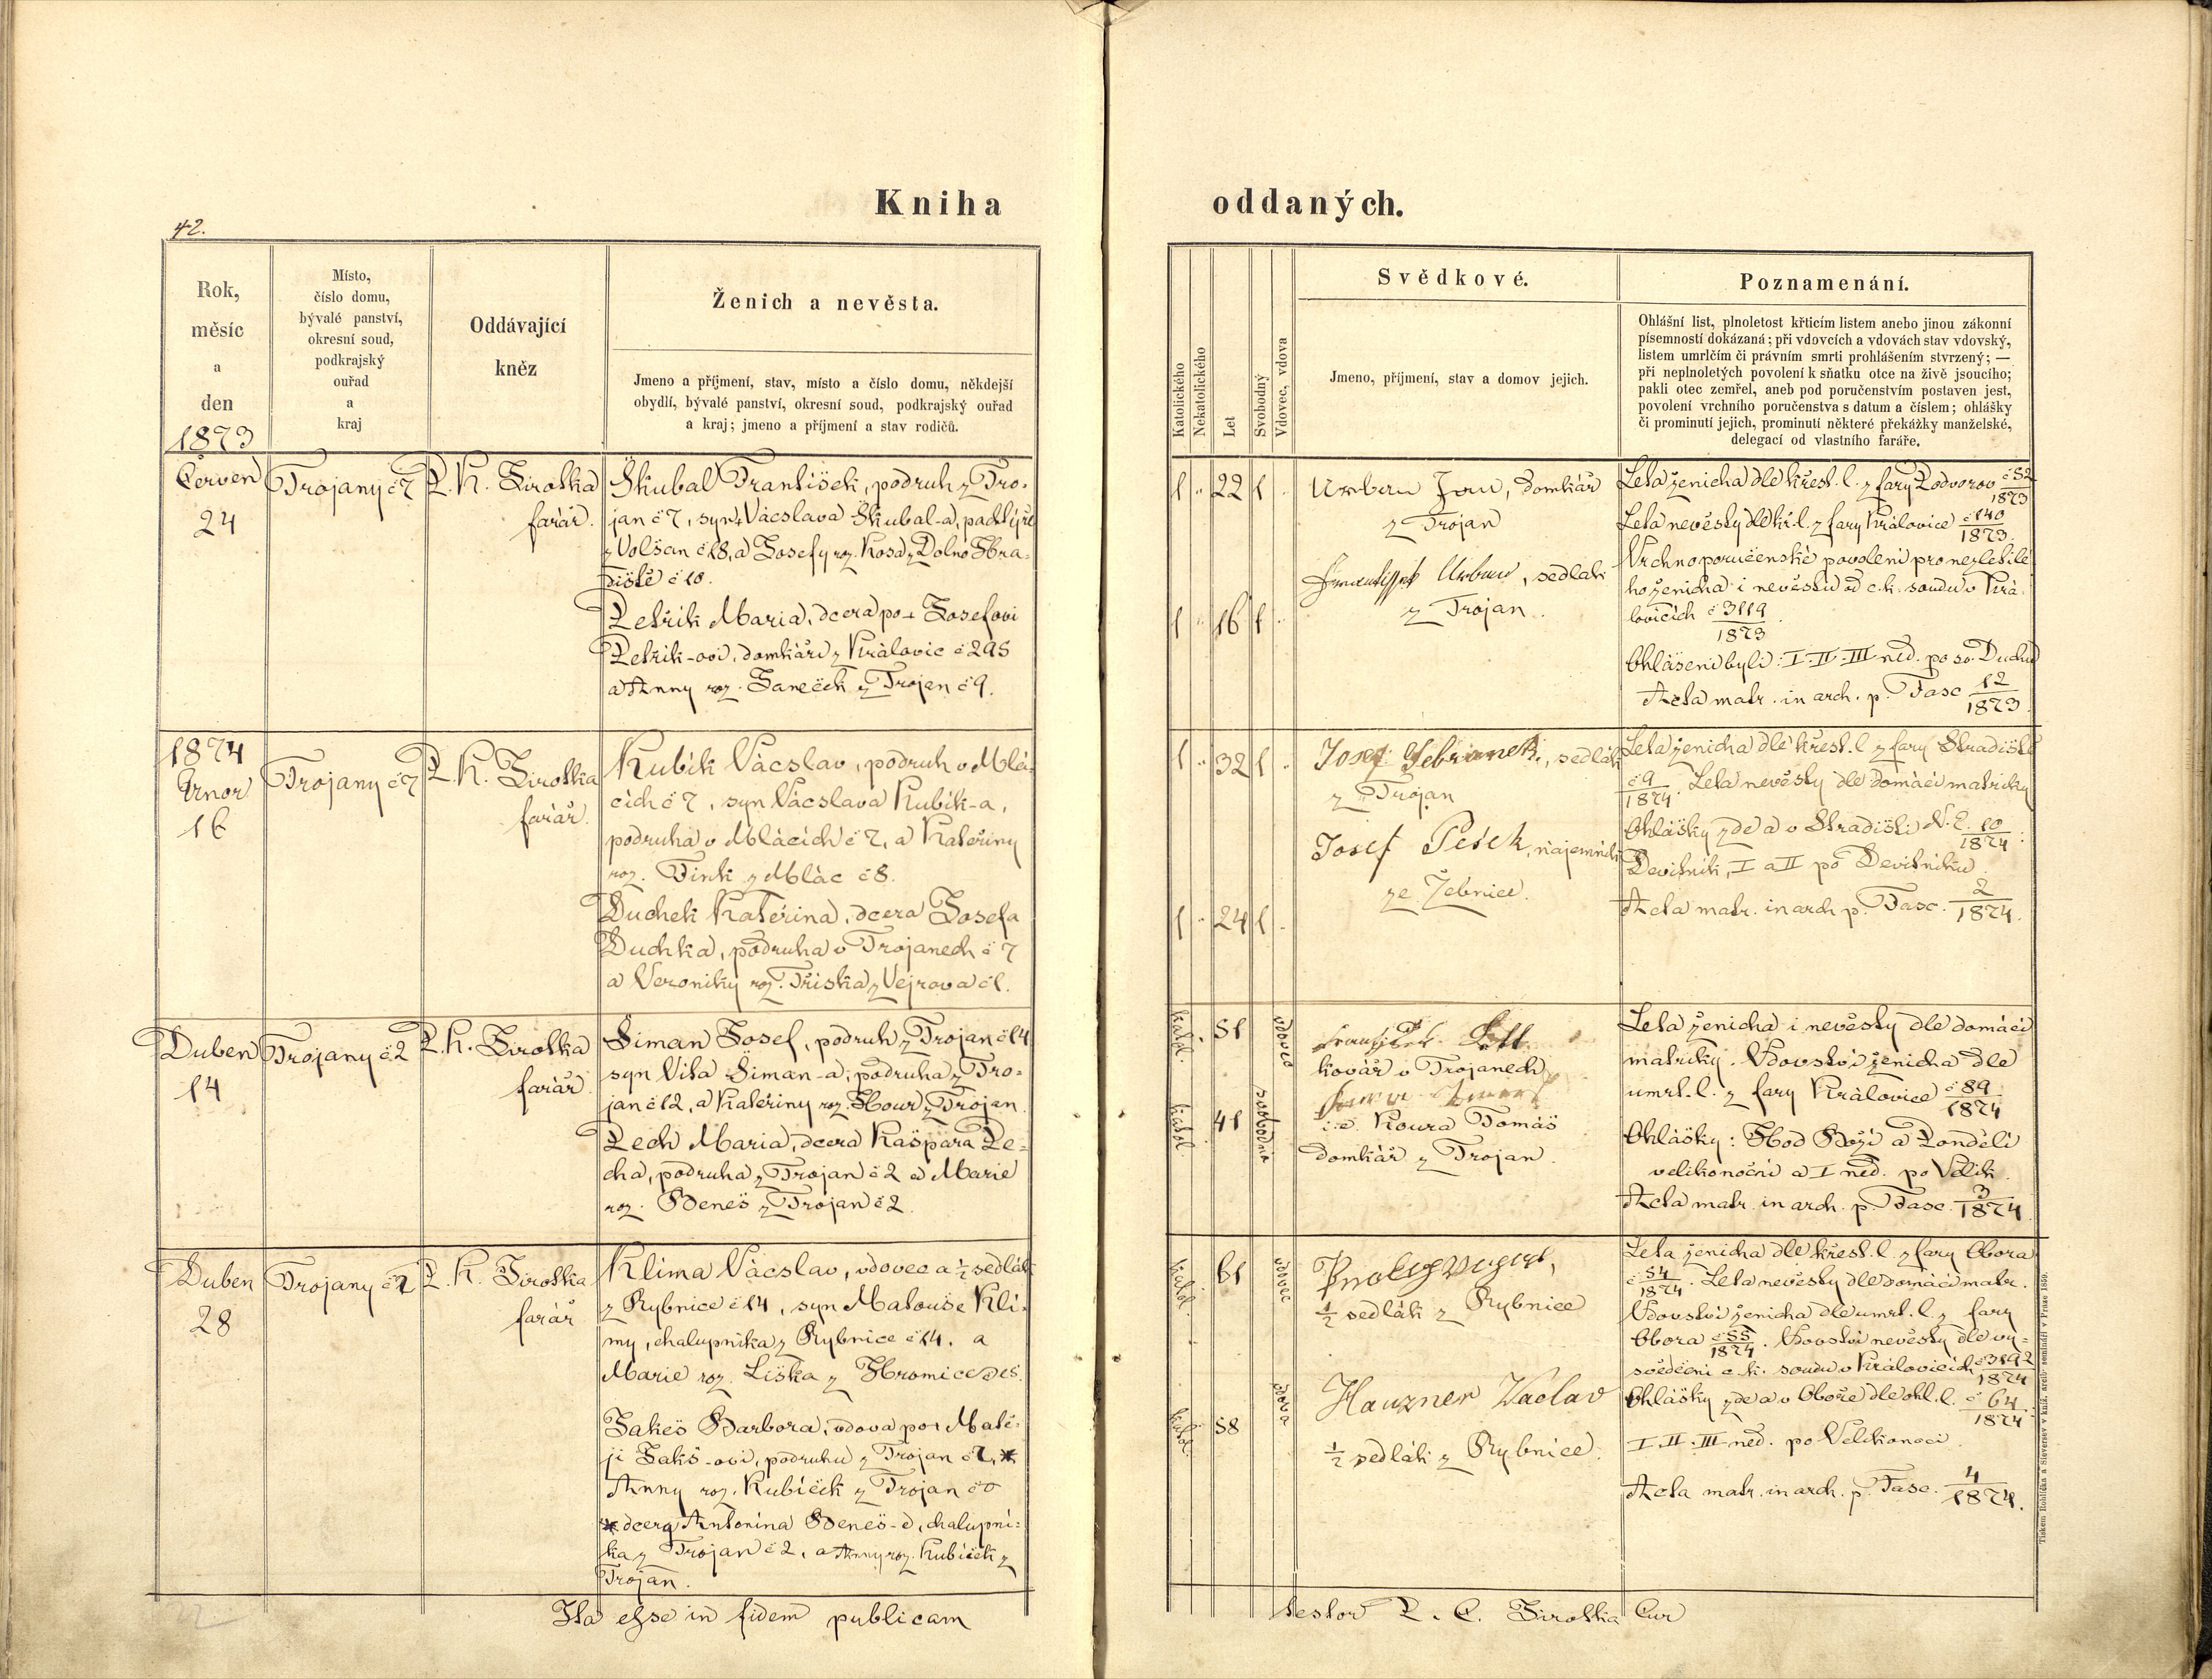 Kniha oddaných.
42.
Rok,
měsíc
a
den
1873
Místo,
číslo domu,
bývalé panství,
okresní soud,
podkrajský
ouřad
a
kraj
Oddávající
kněz
Ženich a nevěsta.
Jmeno a příjmení, stav, místo a číslo domu, někdejší
obydlí, bývalé panství, okresní soud, podkrajský ouřad
a kraj; jmeno a příjmení a stav rodičů.
Katolického
Nekatolického
Let
Svobodný
Vdovec, vdova
Svědkové.
Jmeno, příjmení, stav a domov jejich.
Poznamenání.
Ohlášní list, plnoletost křticím listem anebo jinou zákonní
písemností dokázaná; při vdovcích a vdovách stav vdovský,
listem umrlčím či právním smrti prohlášením stvrzený; —
při neplnoletých povolení k sňatku otce na živě jsoucího;
pakli otec zemřel, aneb pod poručenstvím postaven jest,
povolení vrchního poručenstva s datum a číslem; ohlášky
či prominutí jejich, prominutí některé překážky manželské,
delegací od vlastního faráře.
Červen
24
Trojany č 7
P. K. Sirotka
farář.
Škubal František, podruh z Tro-
jan č 7, syn + Vácslava Škubal-a, pastýře
z Volšan č 18, a Josefy roz. Kosa z Dolno Hra-
diště č 10.
Petřík Maria, dcera po + Josefovi
Petřík-ovi, domkáři z Královic č 295
a Anny roz. Janeček z Trojan č 9.
1 22 1
1 16 1
Urban Jan, domkář
z Trojan
František Urban, sedlák
z Trojan.
Leta ženicha dle křest. l. z fary Podvorov č 52/1873
Leta nevěsty dle kř. l. z fary Královice č 140/1873.
Vrchnoporučenské povolení pro nezletilé
ho ženicha i nevěstu od c. k. soudu v Krá-
lovicích č 3119/1873.
Ohlášeni byli: I. II. III ned. po sv. Duchu
Acta matr. in arch. p. Fasc 12/1873
1874
Únor
16
Trojany č 7
P. K. Sirotka
farář.
Kubík Vácslav, podruh v Mlá-
cích č 7, syn Vácslava Kubík-a,
podruha v Mlácích č 7, a Kateřiny
roz. Fink z Mlác č 8.
Duchek Kateřina, dcera Josefa
Duchka, podruha v Trojanech č 7
a Veroniky roz. Tříska z Vejrova č 1.
1 32 1
1 24 1
Josef Šebránek, sedlák
z Trojan
Josef Pešek, nájemník
ze Žebnice.
Leta ženicha dle křest. l. z fary Hradiště
č 9/1874. Leta nevěsty dle domácí matriky
Ohlášky zde a v Hradišti N. E. 10/1874:
Devítník, I a II po Devítníku
Acta matr. in arch p. Fasc. 2/1874.
Duben
14
Trojany č 2
P. K. Sirotka
farář
Šiman Josef, podruh z Trojan č 14
syn Víta Šiman-a, podruha z Tro-
jan č 12, a Kateřiny roz. Hour z Trojan.
Pech Maria, dcera Kašpara Pe-
cha, podruha z Trojan č 2 a Marie
roz. Beneš z Trojan č 2.
katol. 51 vdovec
katol. 41 svobodná
František
kovář v Trojanech
i. e. Koura Tomáš
domkář z Trojan.
Leta ženicha i nevěsty dle domácí
matriky. Vdovství ženicha dle
umrt. l. z fary Královice č 89/1874
Ohlášky: Hod Boží a Pondělí
velikonoční a I ned. po Velik.
Acta matr. in arch. p. Fasc. 3/1874.
Duben
28
Trojany č 2
P. K. Sirotka
farář
Klima Vácslav, vdovec a ½ sedlák
z Rybnice č 14, syn Matouše Kli-
my, chalupníka z Rybnice č 14. a
Marie roz. Liška z Hromice č 15.
Jakeš Barbora, vdova po + Matě-
ji Jakš-ovi, podruhu z Trojan č 2, *
Anny roz. Kubíček z Trojan č 0
* dcera Antonína Beneš-e, chalupní-
ka z Trojan č 2, a Anny roz. Kubíček z
Trojan.
katol. 61 vdovec
katol. 58 vdova
½ sedlák z Rybnice
Hauzner Vaclav
½ sedlák z Rybnice.
Leta ženicha dle křest. l. z fary Obora
č 54/1874. Leta nevěsty dle domácí matr.
Vdovství ženicha dle umrt. l. z fary
Obora č 55/1874. Vdovství nevěsty dle vy-
svědčení c. k. soudu v Královicích č 3192/1874
Ohlášky zde a v Oboře dle ohl. l. č 64/1874.
I. II. III ned. po Velikonoci.
Acta matr. in arch. p. Fasc. 4/1874.
Ita esse in fidem publicam testor P. C. Sirotka Cur